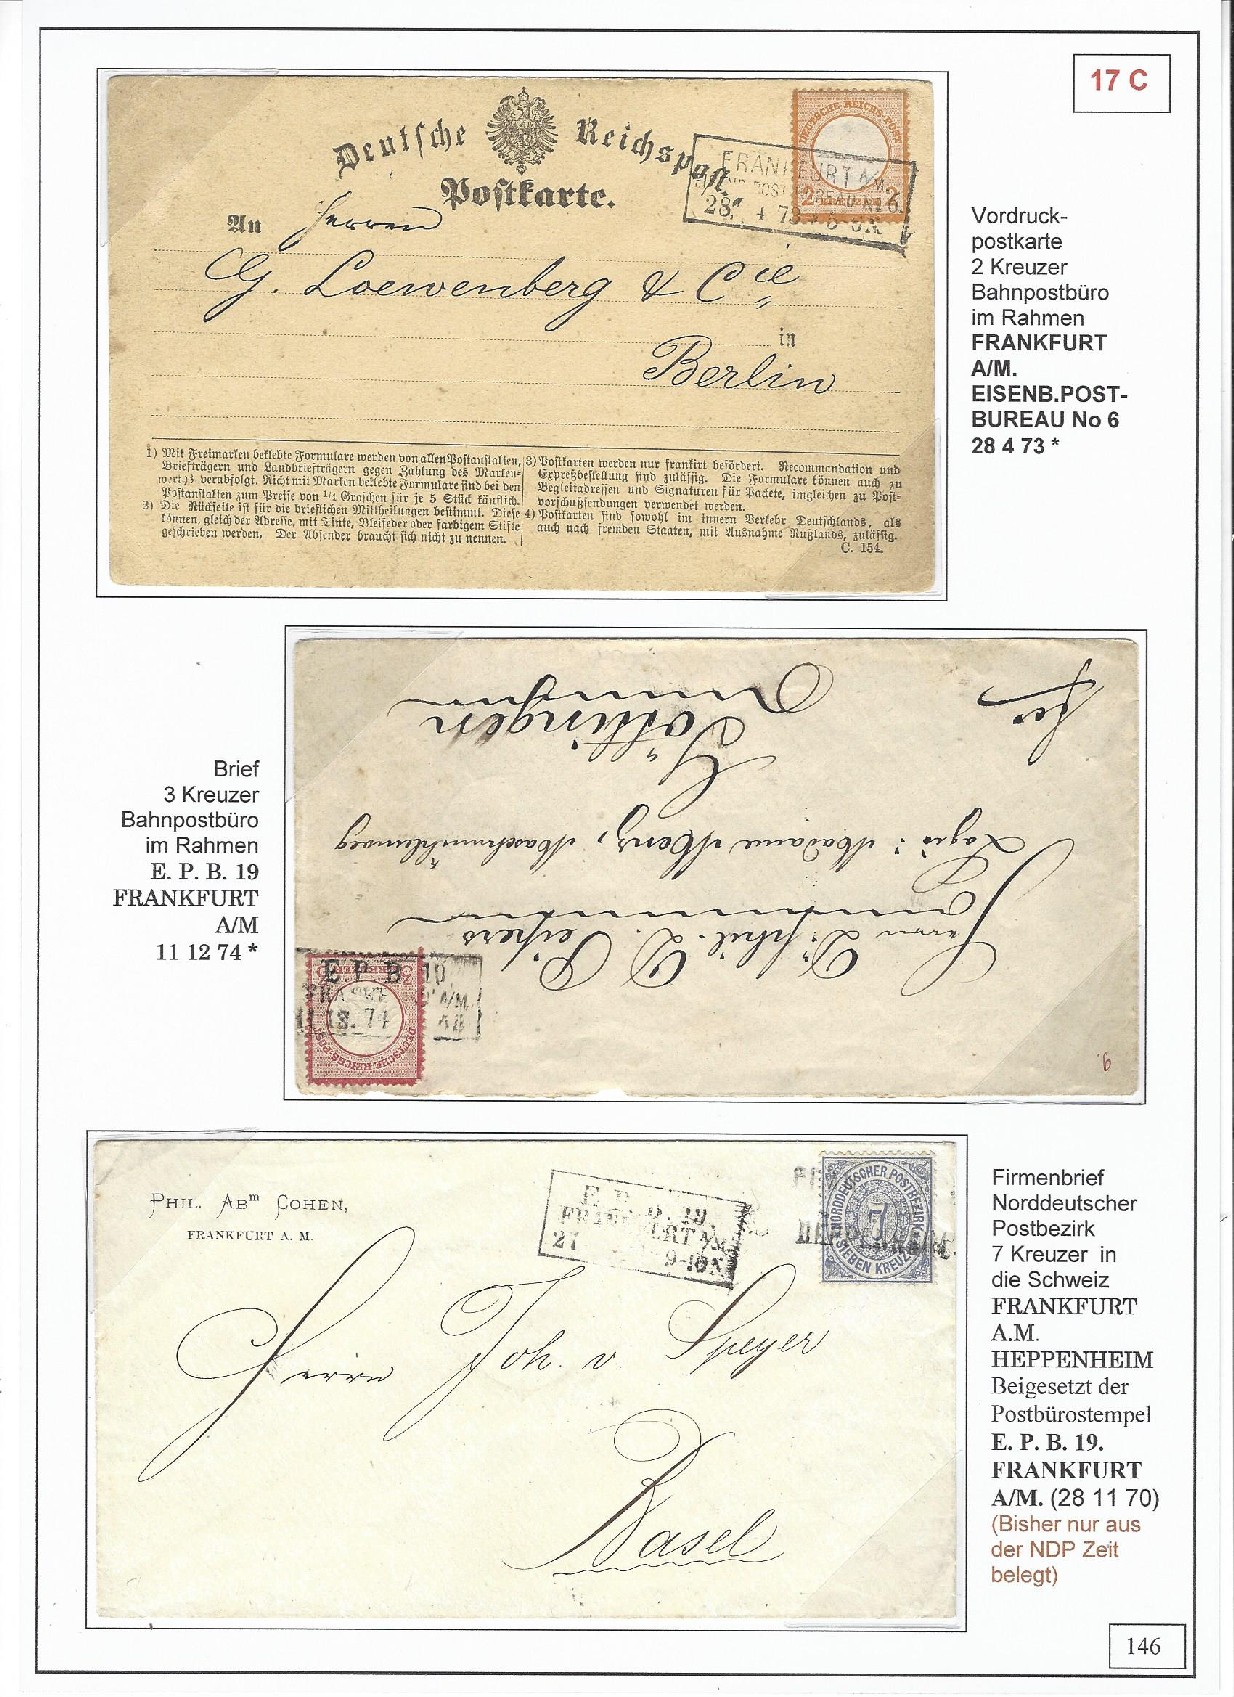 17 C
Deutsche Reichspost.
Postkarte.
FRANKFURT A/M.
28. 4 73
An
Herren
G. Loewenberg & Cie
in
Berlin
1) Mit Freimarken beklebte Formulare werden von allen Postanstalten,
Briefträgern und Landbriefträgern gegen Zahlung des Marken-
werths verabfolgt. Nicht mit Marken beklebte Formulare sind bei den
Postanstalten zum Preise von 1/2 Groschen für je 5 Stück käuflich.
2) Die Rückseite ist für die brieflichen Mittheilungen bestimmt. Diese
können, gleich der Adresse, mit Tinte, Bleifeder oder farbigem Stifte
geschrieben werden. Der Absender braucht sich nicht zu nennen.
3) Postkarten werden nur frankirt befördert. Recommandation und
Expreßbestellung sind zulässig. Die Formulare können auch zu
Begleitadressen und Signaturen für Packete, ingleichen zu Post-
vorschußsendungen verwendet werden.
4) Postkarten sind sowohl im innern Verkehr Deutschlands, als
auch nach fremden Staaten, mit Ausnahme Rußlands, zulässig.
C. 154.
Vordruck-
postkarte
2 Kreuzer
Bahnpostbüro
im Rahmen
FRANKFURT
A/M.
EISENB.POST-
BUREAU No 6
28 4 73 *
Brief
3 Kreuzer
Bahnpostbüro
im Rahmen
E. P. B. 19
FRANKFURT
A/M
11 12 74 *
Herrn Dr phil. D. Peipers
Logis: Madame Menz, Maschmühlenweg
Göttingen
fr
E P B 19
FRANKF A/M.
11 12. 74
6
PHIL. ABm COHEN,
FRANKFURT A. M.
E. P. B. 19.
FRANKFURT A/M.
27 9-10 N
NORDDEUTSCHER POSTBEZIRK
7
SIEBEN KREUZER
HEPPENHEIM
Herrn Joh. v. Speyer
Basel
Firmenbrief
Norddeutscher
Postbezirk
7 Kreuzer in
die Schweiz
FRANKFURT
A.M.
HEPPENHEIM
Beigesetzt der
Postbürostempel
E. P. B. 19.
FRANKFURT
A/M. (28 11 70)
(Bisher nur aus
der NDP Zeit
belegt)
146